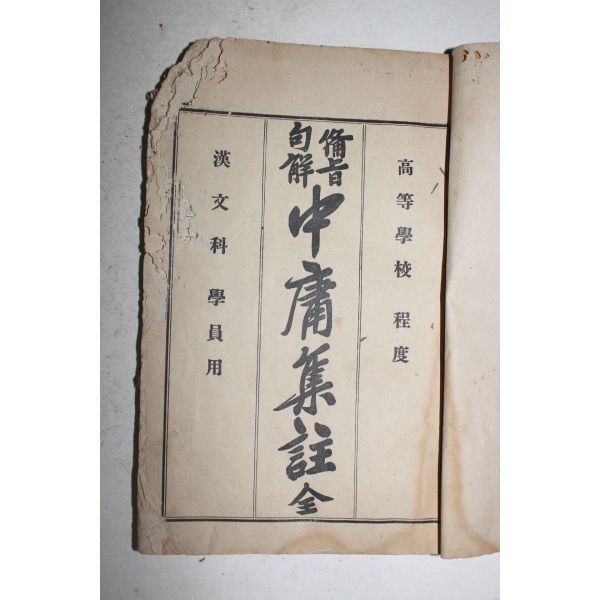 高等學校 程度
備旨
句解
中庸集註 全
漢文科 學員用